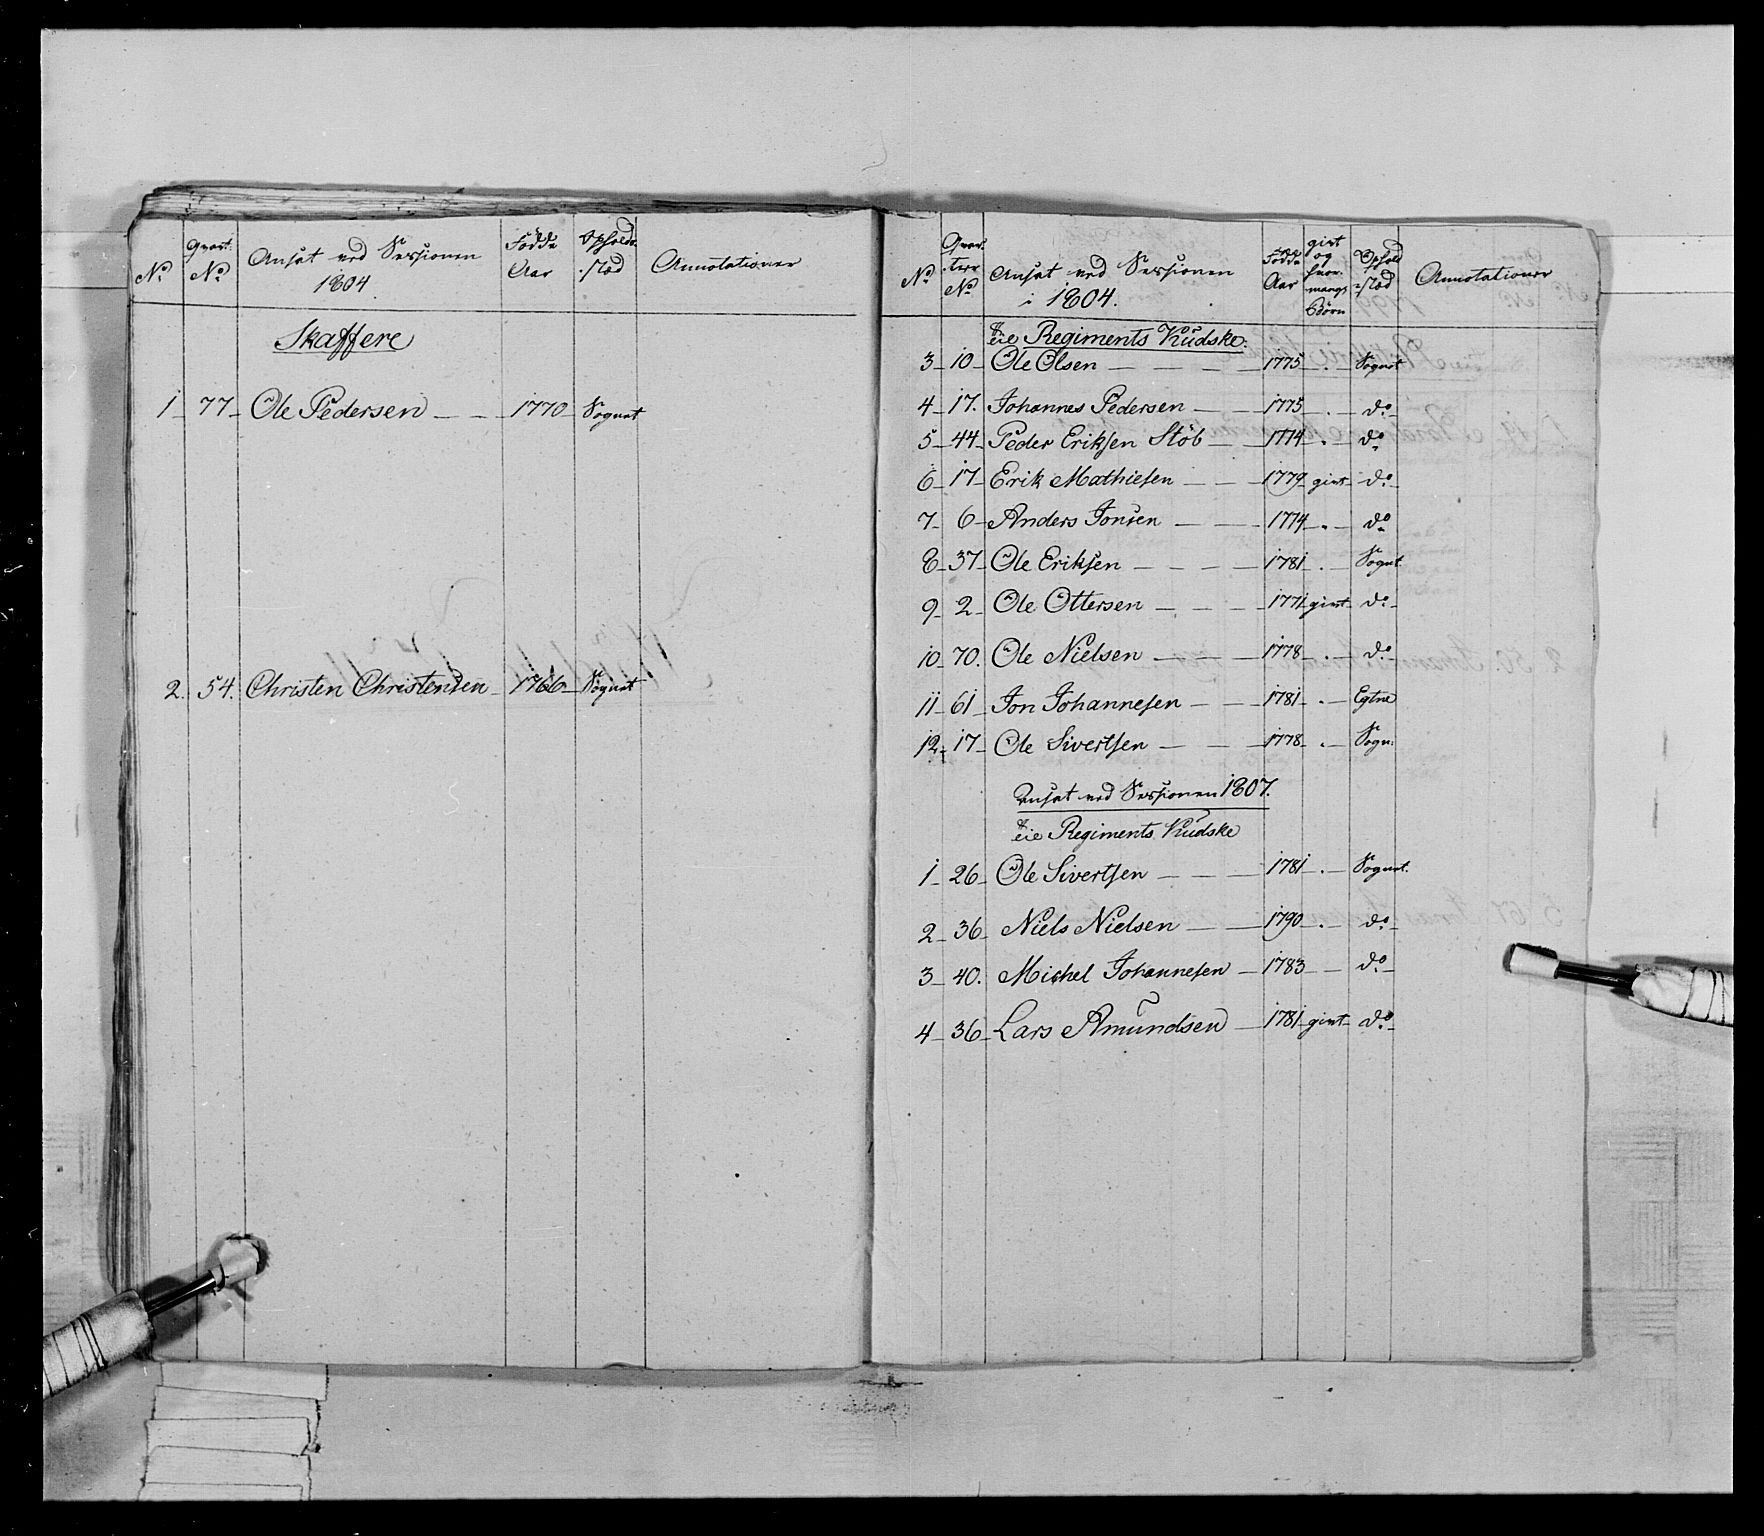 No
Qvart: No
Ansat ved Sessionen 1804
Födde Aar
Opholds. sted
Annotationer
Skaffere
1 77 Ole Pedersen 1770 Sognet
2. 54. Christen Christensen 1766 Sognet
No
Qvar. teer No
Ansat ved Sessionen i 1804.
Födde Aar
givt og hvor mange Börn
Ophold sted
Annotationer
Regiments Kudske.
3 10 Ole Olsen 1775 . Sognet
4 17. Johannes Pedersen 1775 . do
5 44 Peder Eriksen Stöb 1774 . do
6 17 Erik Mathiesen 1779 givt do
7 6 Anders Jonsen 1774 . do
8 37 Ole Eriksen 1781 . Sognet
9 2 Ole Ottersen 1771 givt do
10 70. Ole Nielsen 1778 . do
11 61 Jon Johannesen 1781 . Egtne
12 17 Ole Sivertsen 1778 . Sogn:
Ansat ved Sessionen 1807.
Regiments Kudske
1 26 Ole Sivertsen 1781 . Sognet.
2 36 Niels Nielsen 1790 . do
3 40. Michel Johannesen 1783 do
4 36 Lars Amundsen 1781 givt do